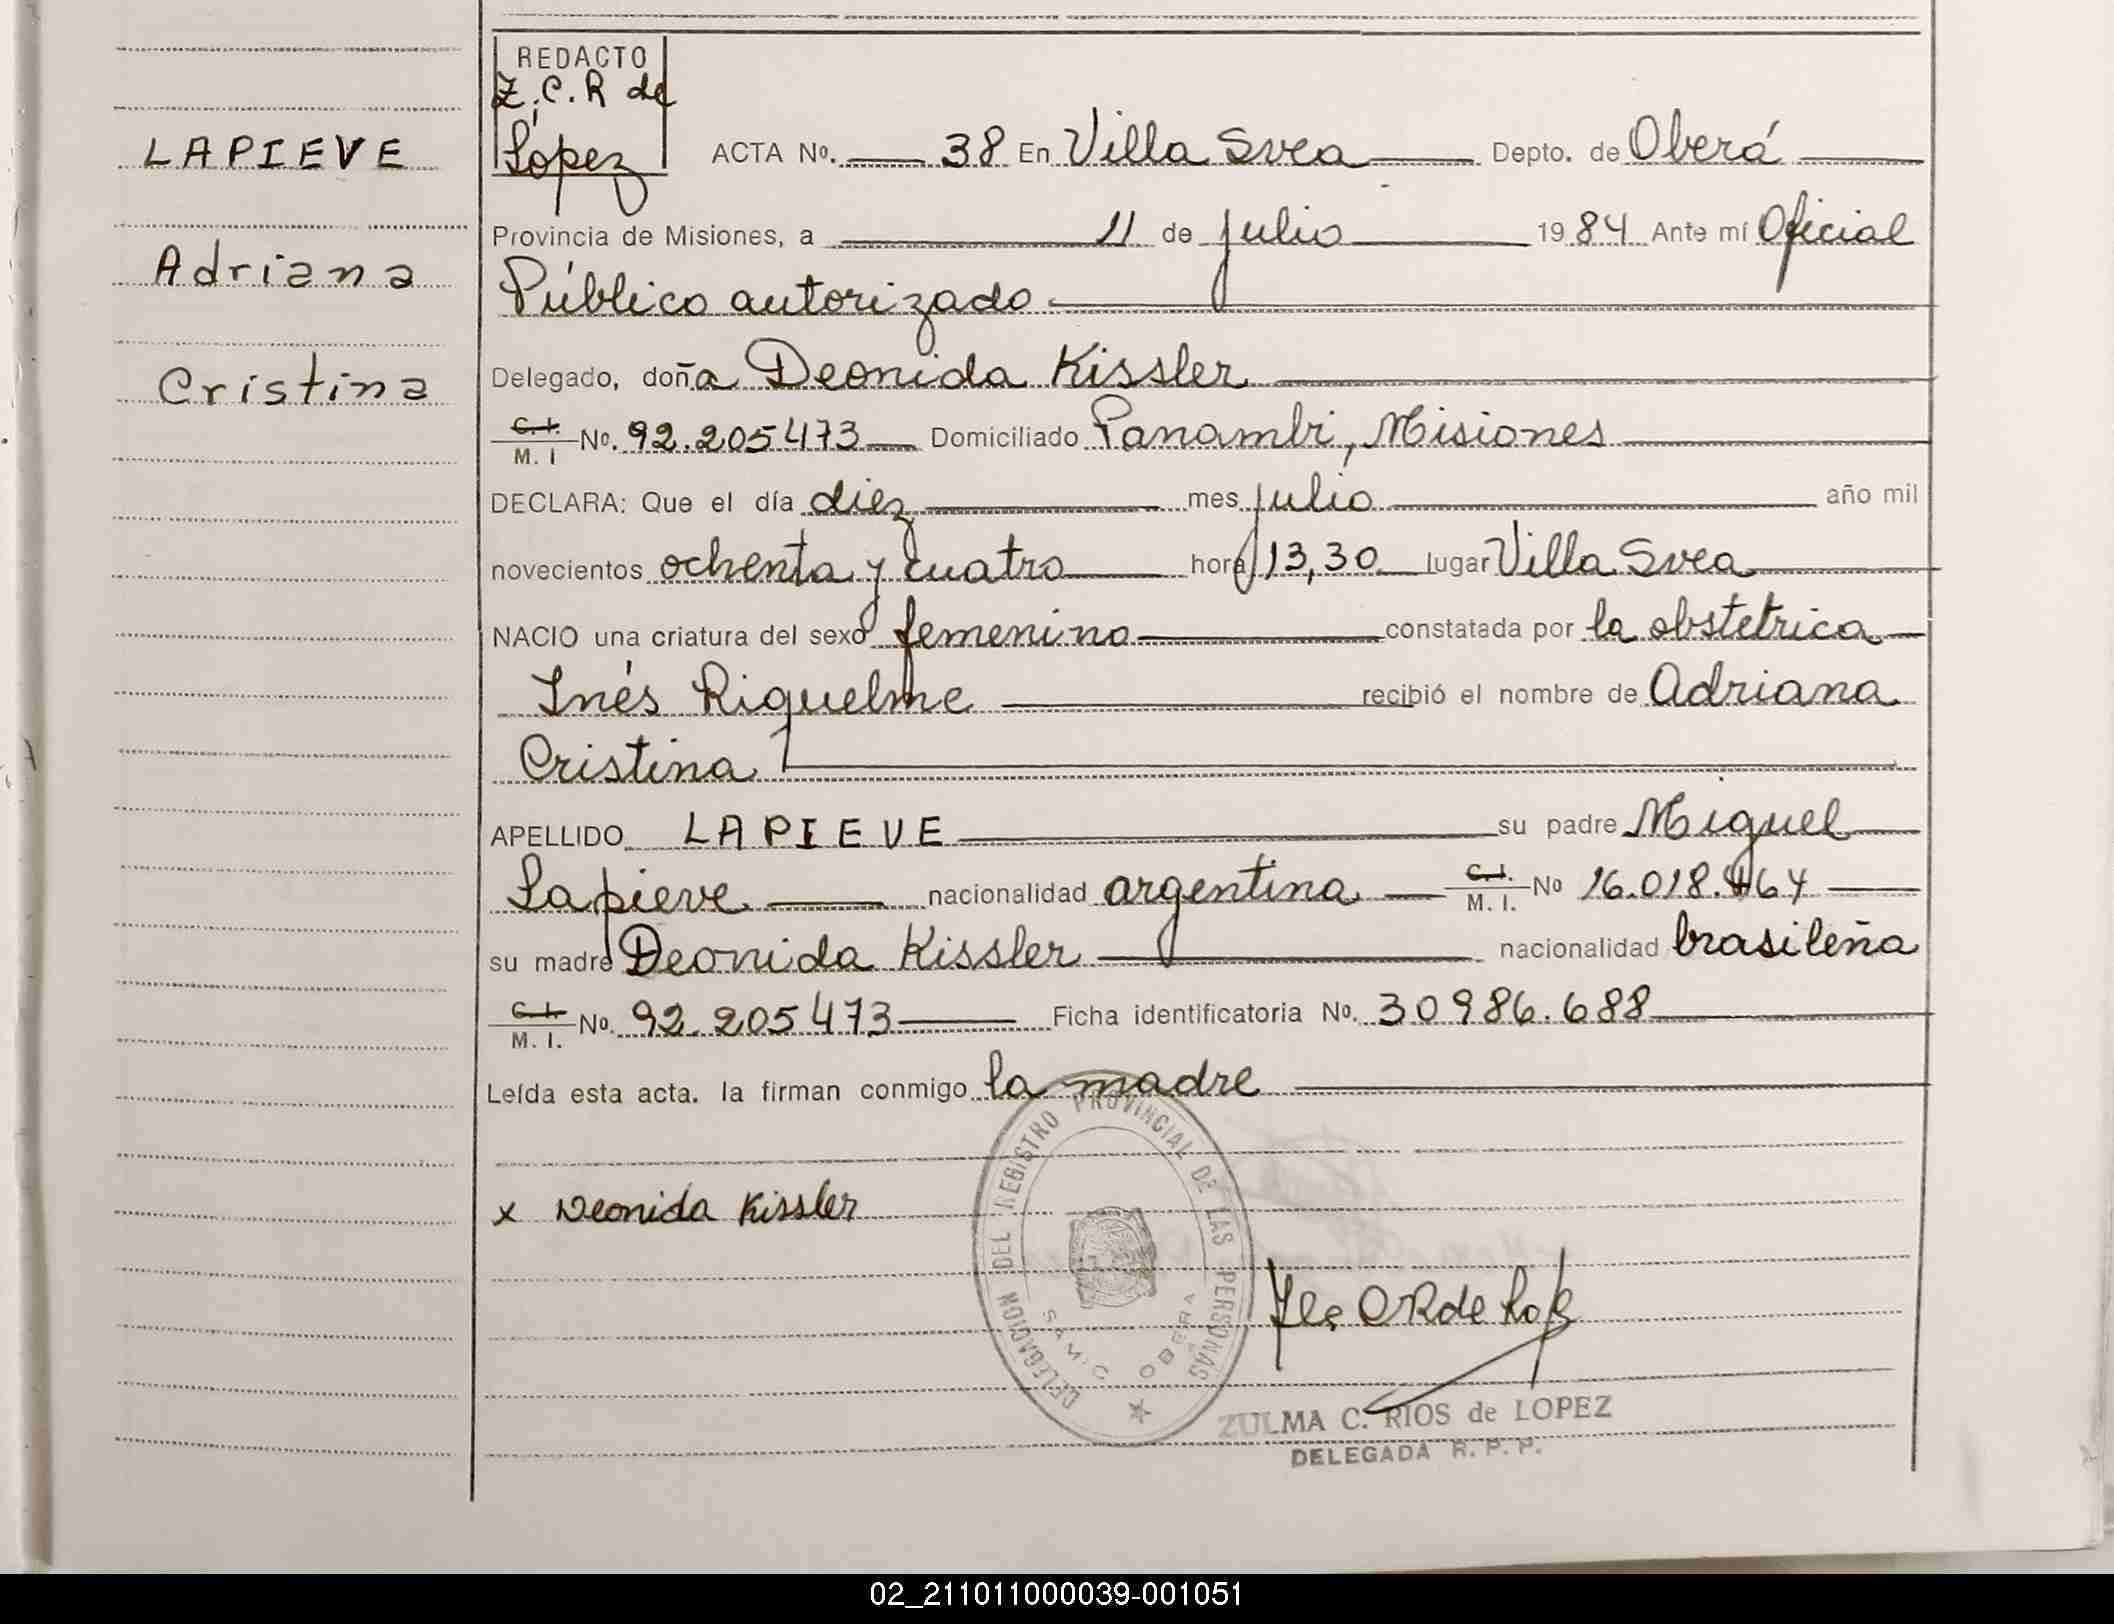 REDACTO
Z.C.R de
López
LAPIEVE
Adriana
Cristina
ACTA No. 38 En Villa Svea Depto. de Oberá
Provincia de Misiones, a 11 de julio 1984 Ante mí Oficial
Público autorizado
Delegado, doña Deonida Kissler
C.I. M. I No. 92.205473 Domiciliado Panambi, Misiones
DECLARA: Que el día diez mes julio año mil
novecientos ochenta y cuatro hora 13,30 lugar Villa Svea
NACIO una criatura del sexo femenino constatada por la obstetrica
Inés Riquelme recibió el nombre de Adriana
Cristina
APELLIDO LAPIEVE su padre Miguel
Lapieve nacionalidad argentina C.I. M. I. No 16.018.464
su madre Deonida Kissler nacionalidad brasileña
C.I. M. I. No. 92.205473 Ficha identificatoria No. 30986.688
Leída esta acta. la firman conmigo la madre
x Deonida Kissler
DELEGACION DEL REGISTRO PROVINCIAL DE LAS PERSONAS
SAMIC OBERA
ZULMA C. RIOS de LOPEZ
DELEGADA R. P. P.
02_211011000039-001051